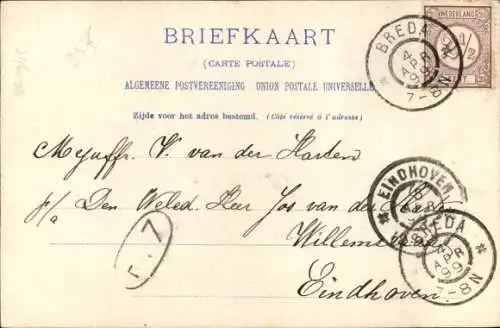 BRIEFKAART
(CARTE POSTALE)
ALGEMEENE POSTVEREENIGING UNION POSTALE UNIVERSELLE
Zijde voor het adres bestemd. (Côté réservé à l'adresse)
NEDERLAND
BREDA
4 APR 99
7-8N
Mejuffr. V. van der Harten
p/a Den Weled. Heer Jos van der
Willems
Eindhoven
EINDHOVEN
BREDA
4 APR 99
7-8N